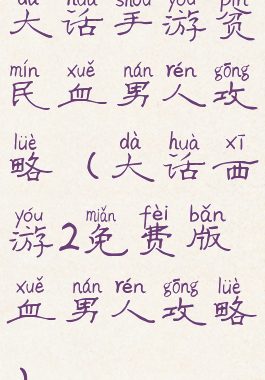 dà huà shǒu yóu pín
大话手游贫
mín xuě nán rén gōng
民血男人攻
lüè dà huà xī
略（大话西
yóu miǎn fèi bǎn
游2免费版
xuě nán rén gōng lüè
血男人攻略
）